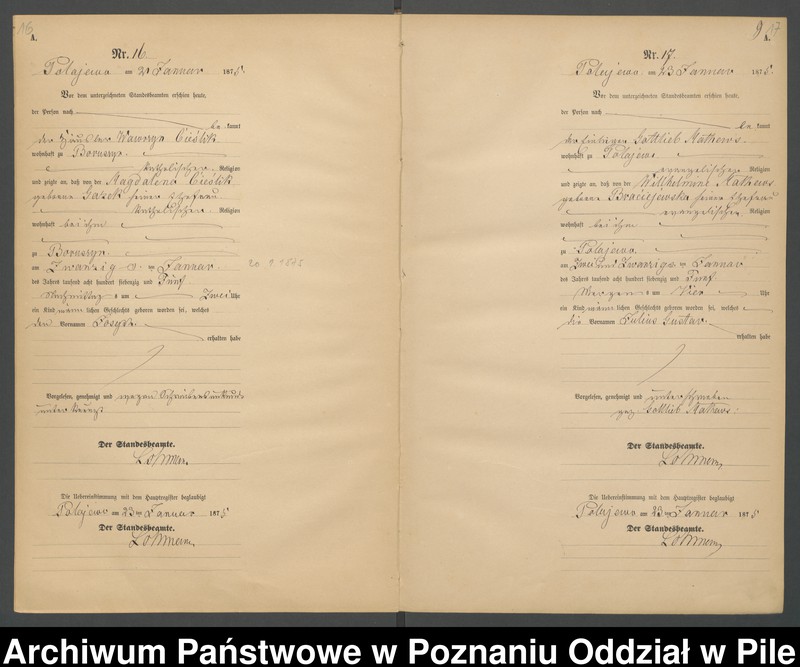 16
A.
Nr. 16
Polajewo am 21 Januar 1875.
Vor dem unterzeichneten Standesbeamten erschien heute,
der Person nach
be kannt
der Wawrzyn Cieślik
wohnhaft zu Boruszyn
katholischer Religion
und zeigte an, daß von der Magdalena Cieślik
geborene seiner Ehefrau
katholischer Religion
wohnhaft bei ihm
zu Boruszyn
am Januar
des Jahres tausend acht hundert siebenzig und fünf
Nachmittag s um Zwei Uhr
ein Kind männ lichen Geschlechts geboren worden sei, welches
den Vornamen Josefa
erhalten habe
20 1 1875
Vorgelesen, genehmigt und wegen Schreibensunkunde
unterkreuzt
Der Standesbeamte.
Lohmann
Die Uebereinstimmung mit dem Hauptregister beglaubigt
Polajewo am 23ten Januar 1875
Der Standesbeamte.
Lohmann
9 17
A.
Nr. 17.
Polajewo am 23 Januar 1875.
Vor dem unterzeichneten Standesbeamten erschien heute,
der Person nach
be kannt
der Einlieger Gottlieb Mathews
wohnhaft zu Polajewo
evangelischer Religion
und zeigte an, daß von der Wilhelmine Mathews
geborene Braciejewska seiner Ehefrau
evangelischer Religion
wohnhaft bei ihm
zu Polajewo
am Zwei und Zwanzigsten Januar
des Jahres tausend acht hundert siebenzig und fünf
Morgen s um Vier Uhr
ein Kind männ lichen Geschlechts geboren worden sei, welches
die Vornamen Julius Gustav
erhalten habe
Vorgelesen, genehmigt und unterschrieben
gez Gottlieb Mathews.
Der Standesbeamte.
Lohmann
Die Uebereinstimmung mit dem Hauptregister beglaubigt
Polajewo am 23ten Januar 1875
Der Standesbeamte.
Lohmann
Archiwum Państwowe w Poznaniu Oddział w Pile